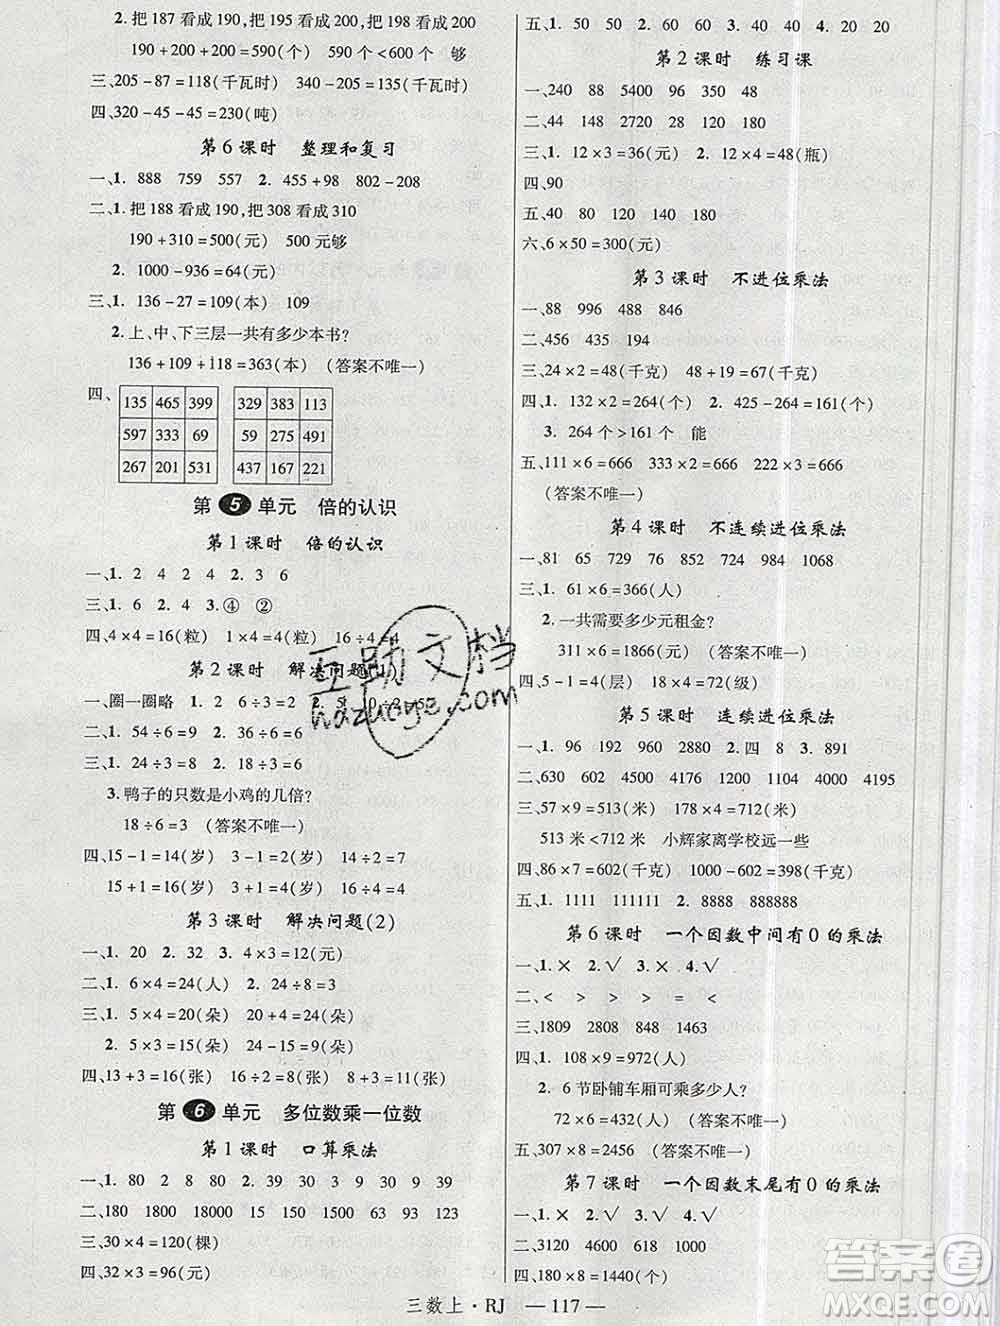 2. 把 187 看成 190,把 198 看成 200
190+200+200=590(个) 590个<600个 够
三、205-87=118(千瓦时) 340-205=135(千瓦时)
四、320-45-45=230(吨)
第6课时 整理和复习
一、1. 888 759 557 2. 455+98 802-208
二、1. 把 188 看成 190,把 308 看成 310
190+310=500(元) 500元够
2. 1000-936=64(元)
三、1. 136-27=109(本) 109
2. 上、中、下三层一共有多少本书?
136+109+118=363(本) (答案不唯一)
四、
135 465 399
597 333 69
267 201 531
329 383 113
59 275 491
437 167 221
第5单元 倍的认识
第1课时 倍的认识
一、1. 2 4 2 4 2. 3 6
三、1. 6 2. 4 3. ④ ②
四、4×4=16(粒) 1×4=4(粒) 16÷4=4
第2课时 解决问题(1)
一、圈一圈略 1. 2 6÷3=2 2. 5
二、1. 54÷6=9 2. 36÷6=6
三、1. 24÷3=8 2. 24÷8=3
3. 鸭子的只数是小鸡的几倍?
18÷6=3 (答案不唯一)
四、15-1=14(岁) 3-1=2(岁) 14÷2=7
15+1=16(岁) 3+1=4(岁) 16÷4=4
第3课时 解决问题(2)
一、1. 20 2. 32 3. 4×3=12(元)
二、1. 4×6=24(人) 2. 24÷8=3
三、1. 5×4=20(朵) 20+4=24(朵)
2. 5×3=15(朵) 24-15=9(朵)
四、13+3=16(张) 16÷2=8(张) 8+3=11(张)
第6单元 多位数乘一位数
第1课时 口算乘法
一、1. 80 2 8 80 2. 3 9 30 9 39
二、180 1800 18000 15 150 1500 63 93 123
三、30×4=120(棵)
四、32×3=96(元)
五、1. 50 50 2. 40 40 3. 40 40 4. 20 20
第2课时 练习课
一、240 88 5400 96 350 48
二、44 148 2720 28 120 180
三、1. 12×3=36(元) 2. 12×4=48(瓶)
四、90
五、40 80 120 180
六、6×50=300(元)
第3课时 不进位乘法
一、88 996 488 846
二、456 435 194
三、24×2=48(千克) 48+19=67(千克)
四、1. 132×2=264(个) 2. 425-264=161(个)
3. 264个>161个 能
五、111×6=666 333×2=666 222×3=666
(答案不唯一)
第4课时 不连续进位乘法
一、81 65 729 76 852 724 984 1068
三、1. 61×6=366(人)
2. 一共需要多少元租金?
311×6=1866(元) (答案不唯一)
四、5-1=4(层) 18×4=72(级)
第5课时 连续进位乘法
一、1. 96 192 960 2880 2. 四 8 3. 891
二、630 602 4500 1760 4000 4195
三、57×9=513(米) 178×4=712(米)
513米<712米 小辉家离学校远一些
四、86×7=602(千克) 1000-602=398(千克)
五、1. 1111 111111 2. 8888 888888
第6课时 一个因数中间有0的乘法
一、1. × 2. √ 3. × 4. √
二、< > > > = <
三、1809 2808 848 1463
四、1. 108×9=972(人)
2. 6节卧铺车厢可乘多少人?
72×6=432(人) (答案不唯一)
五、307×8=2456 (答案不唯一)
第7课时 一个因数末尾有0的乘法
一、1. × 2. √ 3. √ 4. ×
二、3120 4600 630 1000
四、180×8=1440(个)
三数上·RJ —117—
互助文档
hazuoye.com
答案圈
MXQE.COM